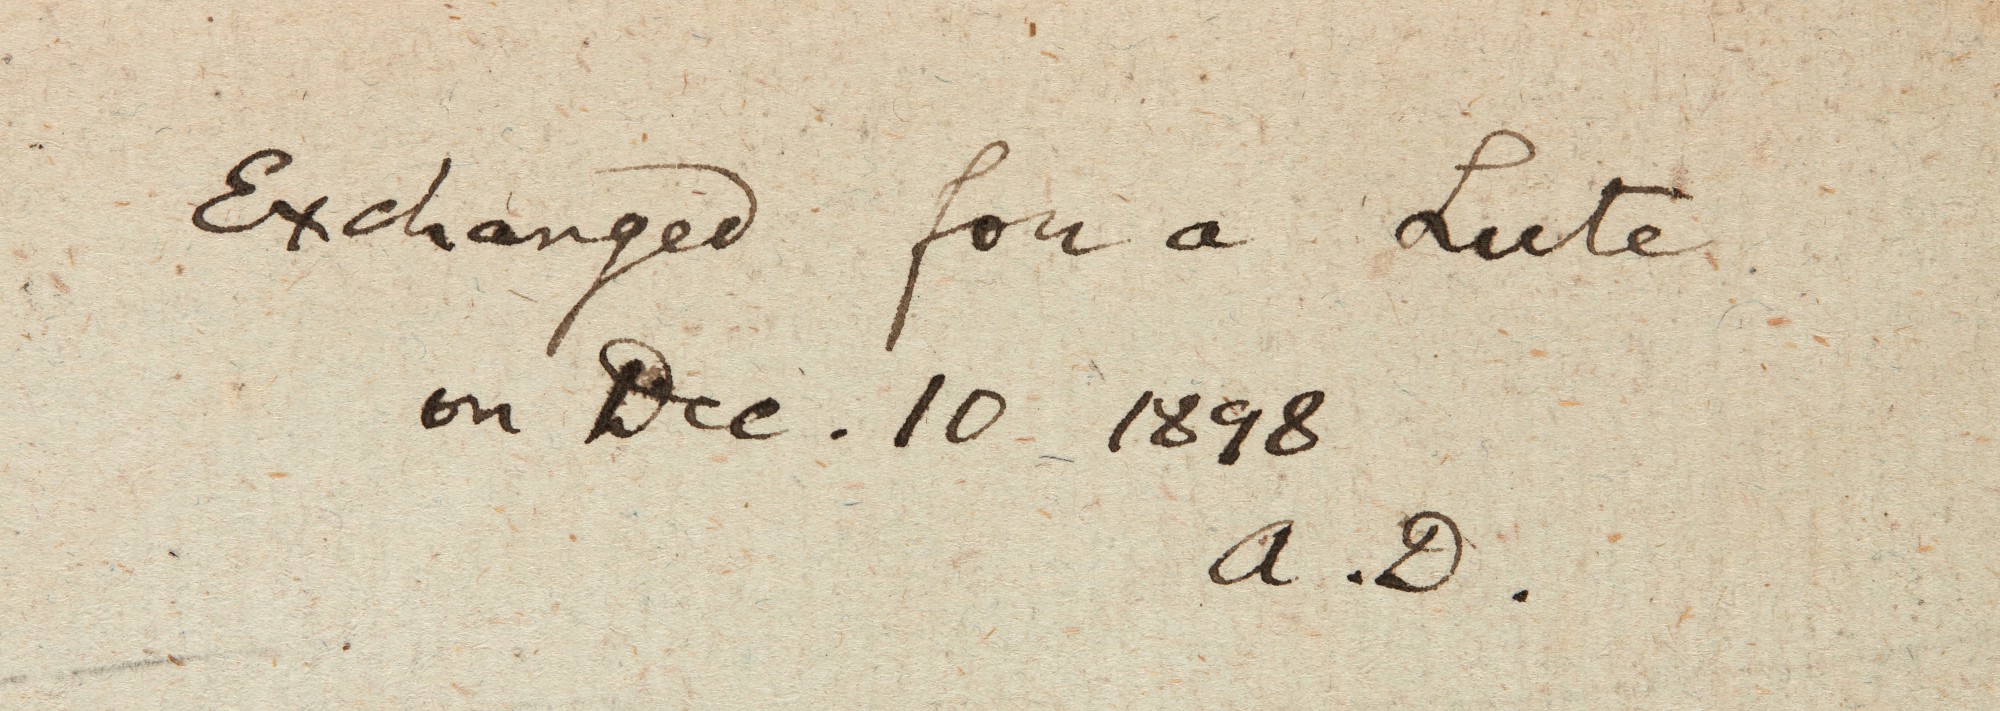 Exchanged for a Lute
on Dec. 10 1898
A.D.